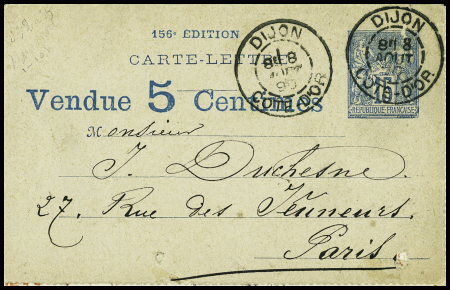 156e ÉDITION
CARTE-LETTRE
Vendue 5 Centimes
DIJON
8E 8
AOUT
COTE-D'OR
DIJON
8E 8
AOUT
COTE-D'OR
REPUBLIQUE FRANÇAISE
Monsieur
J. Duchesne
27. Rue des Jeuneurs.
Paris.